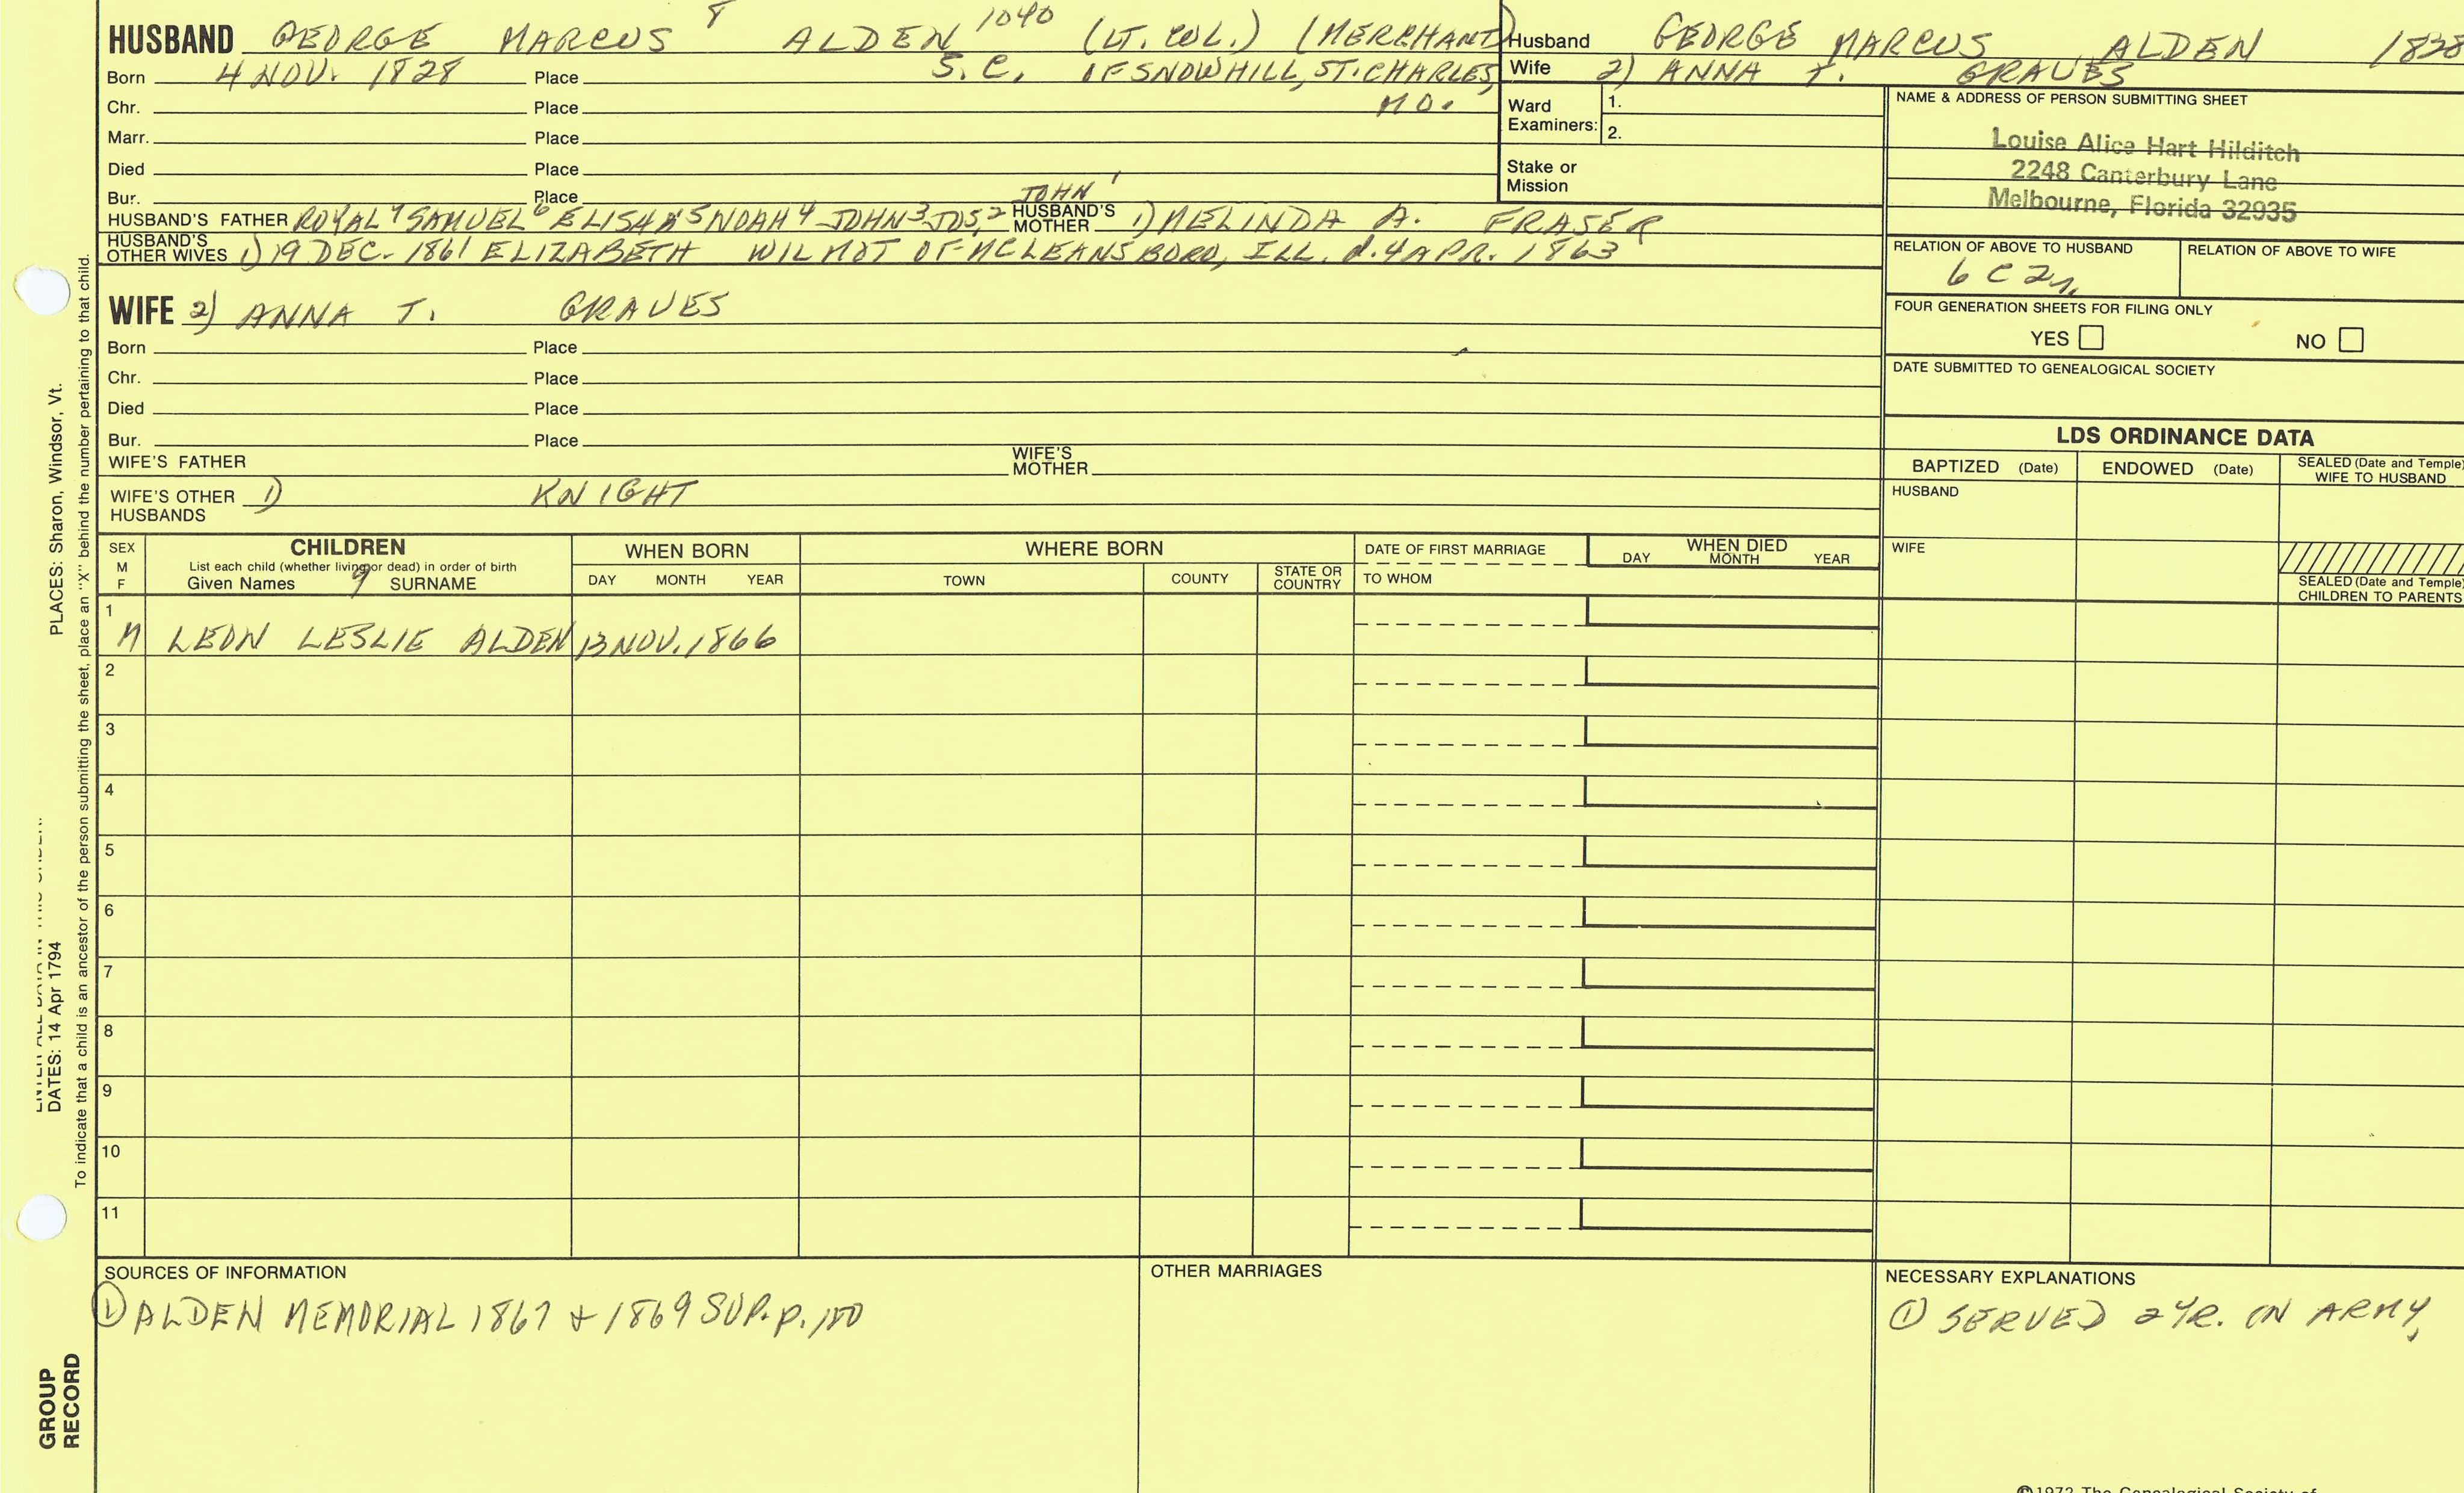 HUSBAND GEORGE MARCUS 8 ALDEN 1040 (LT. COL.) (MERCHANT)
Born 4 NOV. 1828 Place S.C. OF SNOWHILL, ST. CHARLES,
Chr. Place MO.
Marr. Place
Died Place
Bur. Place
HUSBAND'S FATHER ROYAL 7 SAMUEL 6 ELISHA 5 NOAH 4 JOHN 3 JOS. 2 JOHN 1 HUSBAND'S MOTHER 1) MELINDA A. FRASER
HUSBAND'S OTHER WIVES 1) 19 DEC. 1861 ELIZABETH WILMOT OF MCLEANSBORO, ILL. d. 4 APR. 1863
WIFE 2) ANNA T. GRAVES
Born Place
Chr. Place
Died Place
Bur. Place
WIFE'S FATHER WIFE'S MOTHER
WIFE'S OTHER HUSBANDS 1) KNIGHT
Husband GEORGE MARCUS ALDEN 1828
Wife 2) ANNA T. GRAVES
Ward Examiners: 1.
2.
Stake or Mission
NAME & ADDRESS OF PERSON SUBMITTING SHEET
Louise Alice Hart Hilditch
2248 Canterbury Lane
Melbourne, Florida 32935
RELATION OF ABOVE TO HUSBAND RELATION OF ABOVE TO WIFE
6 C 2 r.
FOUR GENERATION SHEETS FOR FILING ONLY
YES NO
DATE SUBMITTED TO GENEALOGICAL SOCIETY
LDS ORDINANCE DATA
BAPTIZED (Date) ENDOWED (Date) SEALED (Date and Temple) WIFE TO HUSBAND
HUSBAND
WIFE
SEALED (Date and Temple)
CHILDREN TO PARENTS
SEX M F CHILDREN WHEN BORN WHERE BORN DATE OF FIRST MARRIAGE WHEN DIED
List each child (whether living or dead) in order of birth
Given Names 9 SURNAME DAY MONTH YEAR TOWN COUNTY STATE OR COUNTRY TO WHOM DAY MONTH YEAR
1
M LEON LESLIE ALDEN 13 NOV. 1866
2
3
4
5
6
7
8
9
10
11
SOURCES OF INFORMATION
① ALDEN MEMORIAL 1867 + 1869 SUP. P. 150
OTHER MARRIAGES
NECESSARY EXPLANATIONS
① SERVED 2 YR. IN ARMY,
PLACES: Sharon, Windsor, Vt.
DATES: 14 Apr 1794
To indicate that a child is an ancestor of the person submitting the sheet, place an "X" behind the number pertaining to that child.
GROUP
RECORD
©1972 The Genealogical Society of